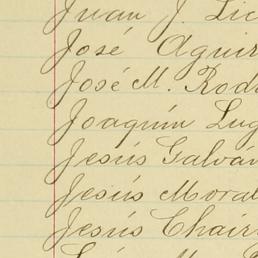 Juan J. Lic
José Aguir
José M. Rod
Joaquín Lug
Jesús Galván
Jesús Moral
Jesús Chair